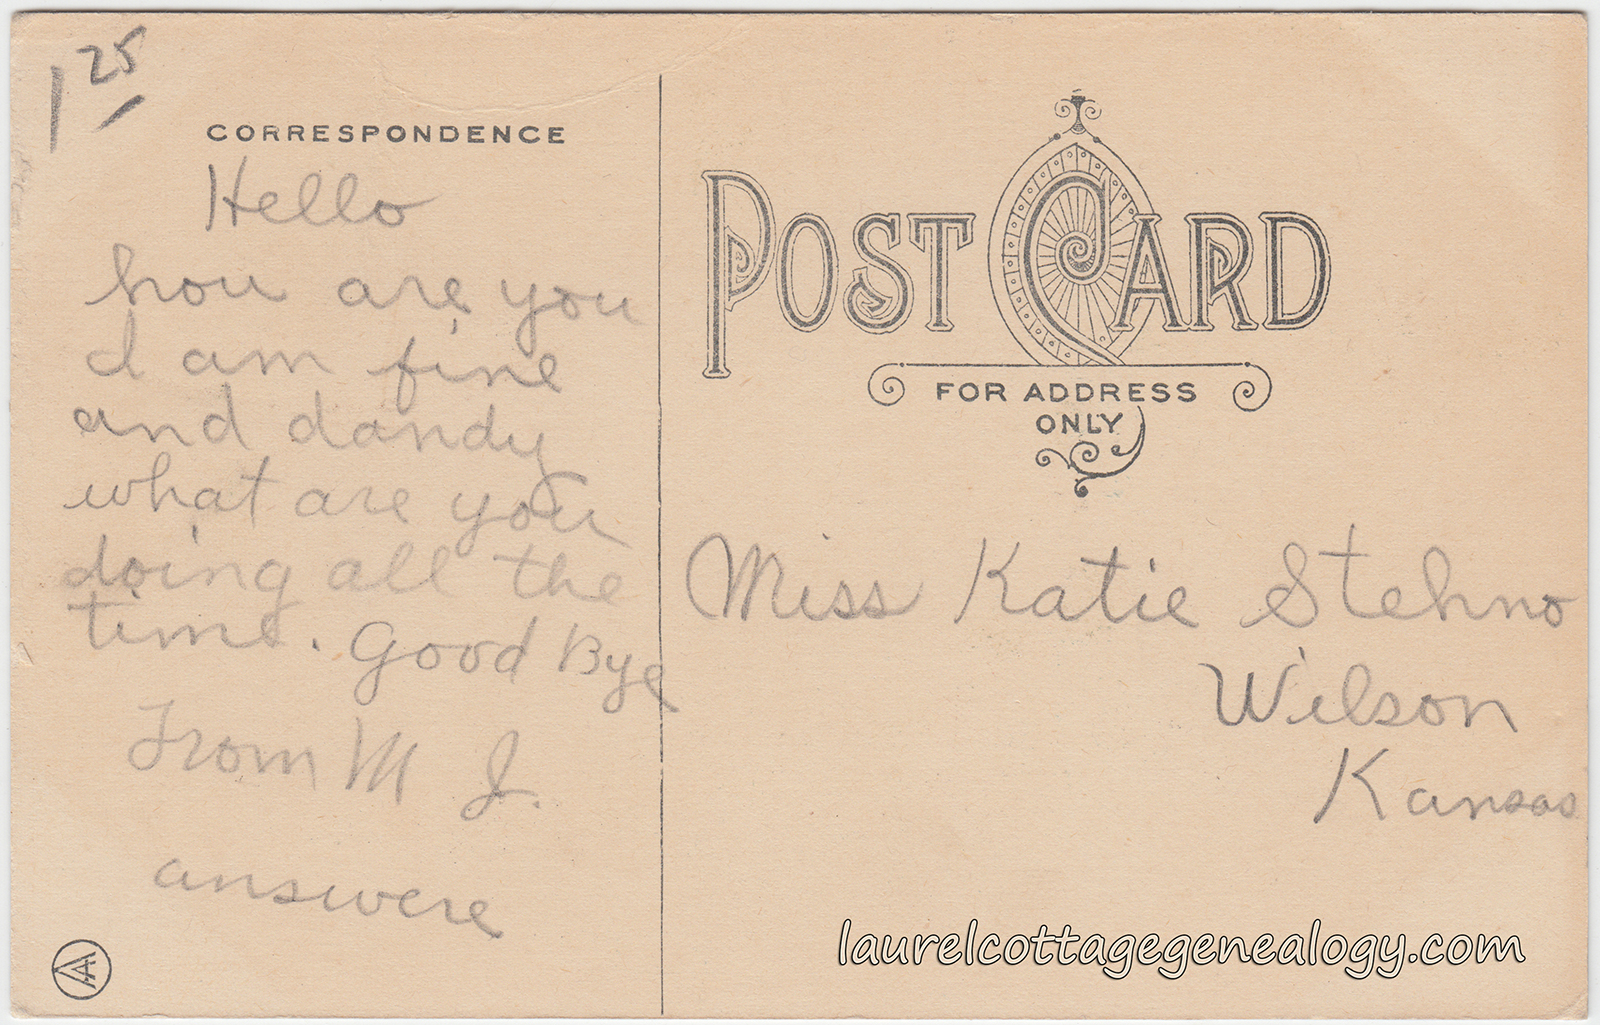 1 25
CORRESPONDENCE
Hello
hou are you
I am fine
and dandy
what are you
doing all the
time. Good Bye
From M J.
answere
POST CARD
FOR ADDRESS
ONLY
Miss Katie Stehno
Wilson
Kansas
laurelcottagegenealogy.com